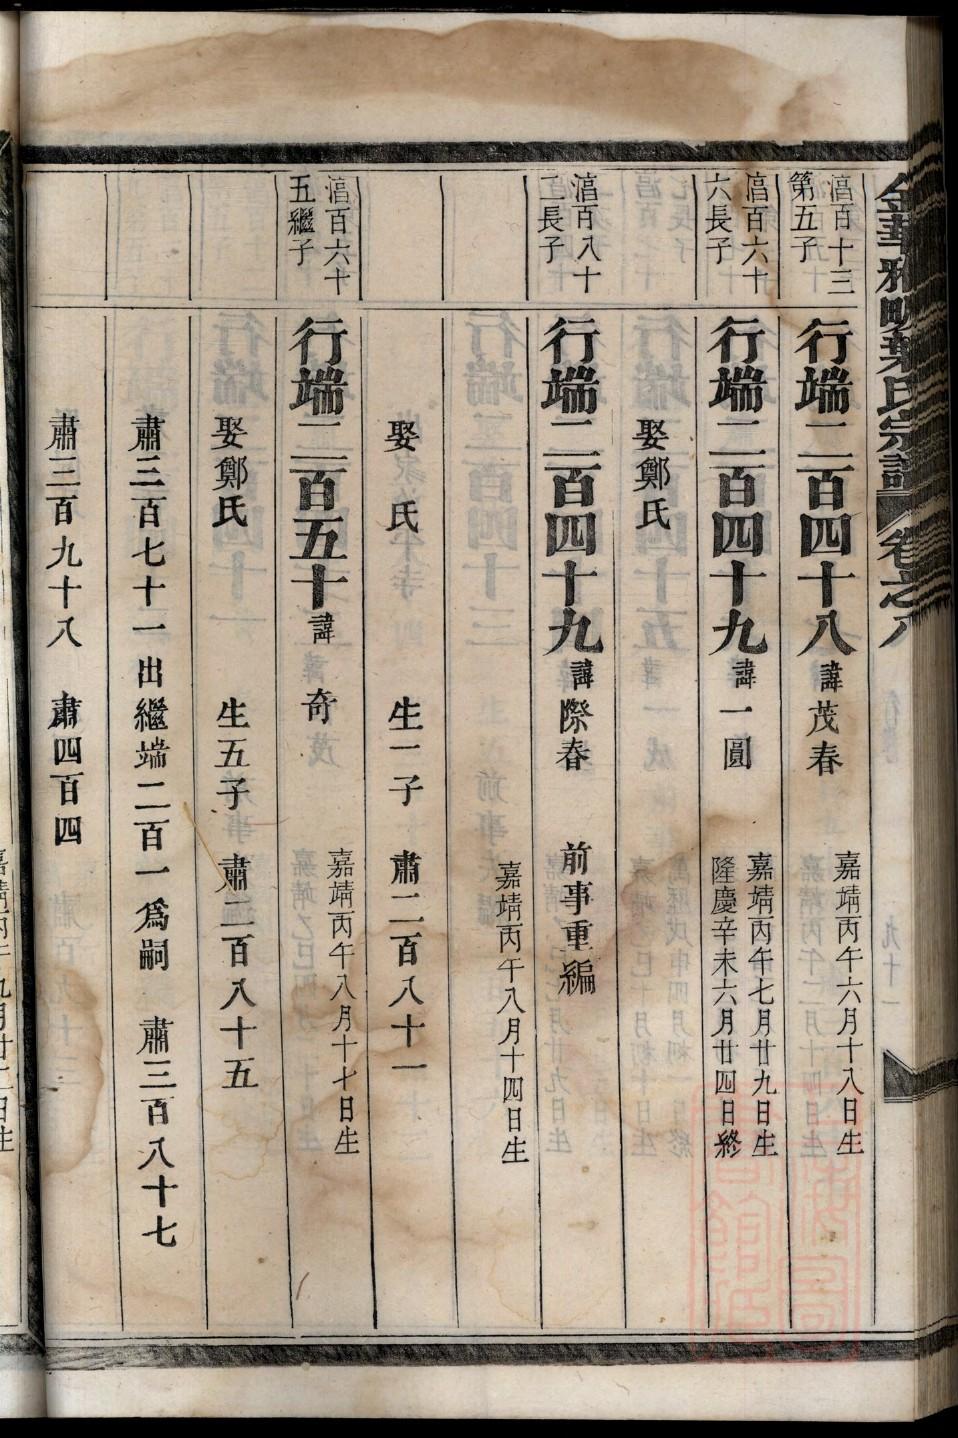 金華雅畈葉氏宗譜 卷之八
淐百十三
第五子
行端二百四十八 諱茂春
嘉靖丙午六月十八日生
淐百六十
六長子
行端二百四十九 諱一圓
嘉靖丙午七月廿九日生
隆慶辛未六月廿四日終
娶鄭氏
淐百八十
二長子
行端二百四十九 諱際春 前事重編
嘉靖丙午八月十四日生
娶 氏 生一子 肅二百八十一
淐百六十
五繼子
行端二百五十 諱奇
嘉靖丙午八月十七日生
娶鄭氏 生五子 肅二百八十五
肅三百七十一出繼端二百一為嗣 肅三百八十七
肅三百九十八 肅四百四